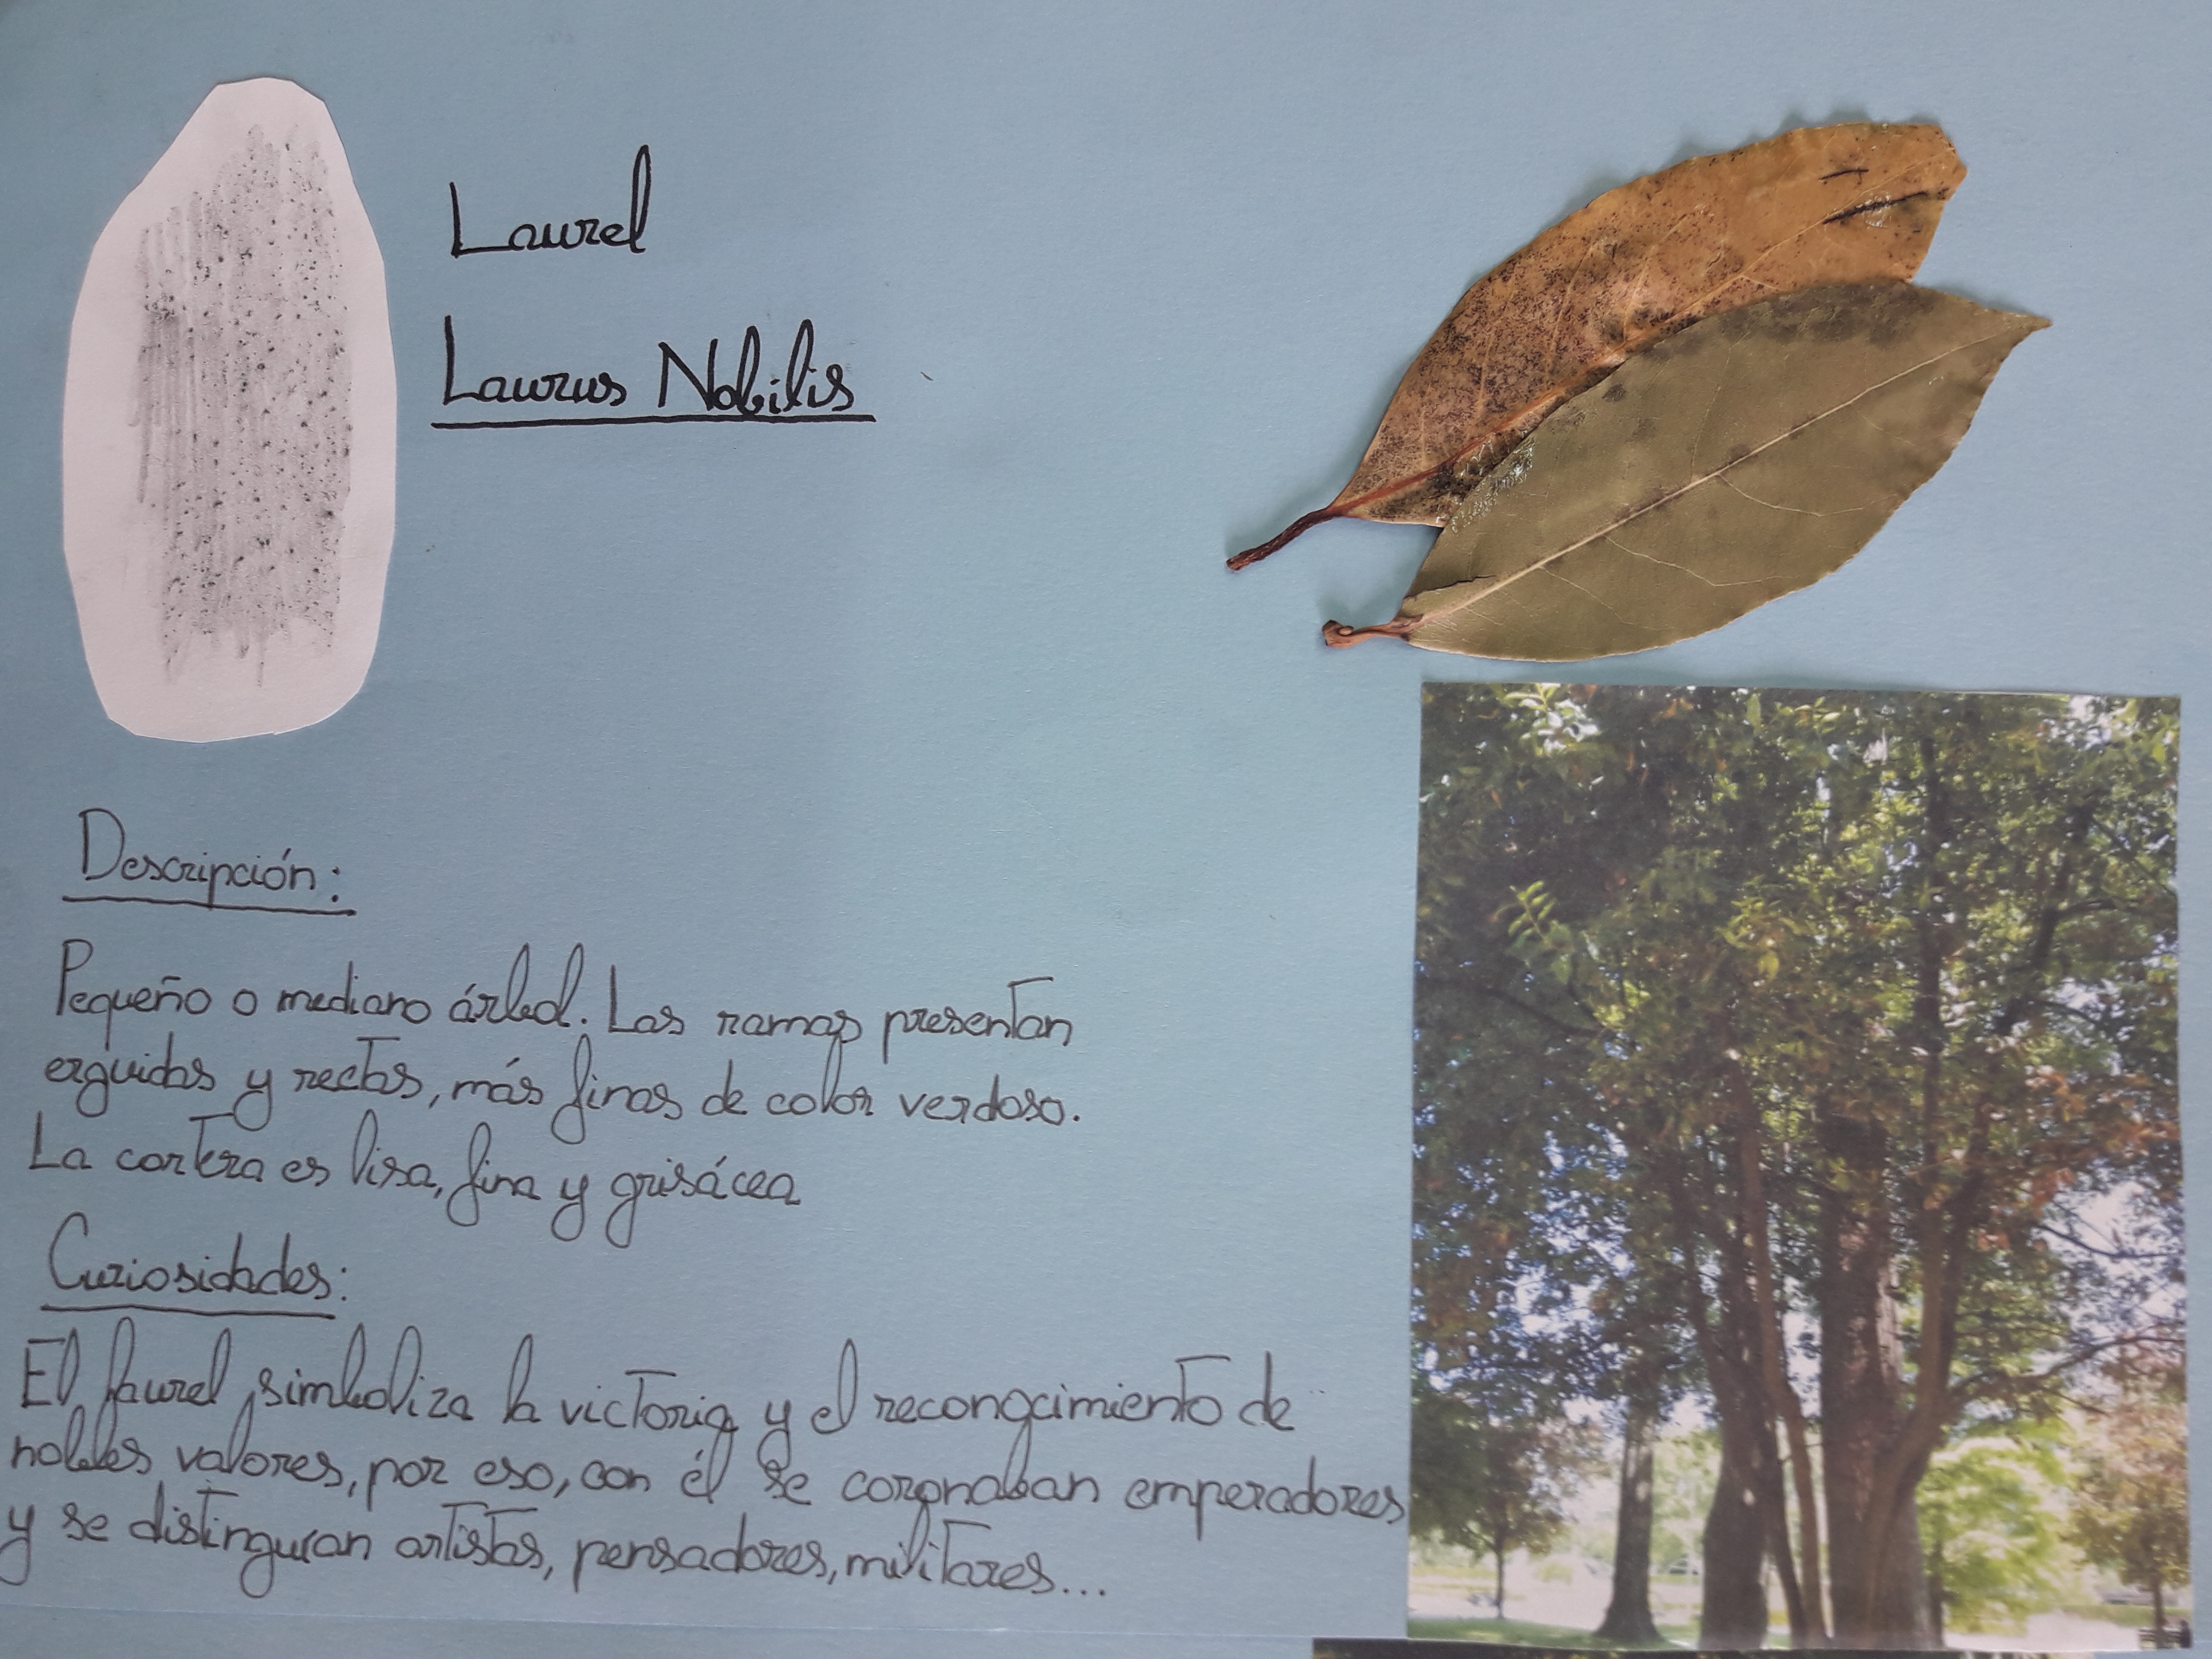 Laurel
Laurus Nobilis
Descripción:
Pequeño o mediano árbol. Las ramas presentan
erguidas y rectas, más finas de color verdoso.
La corteza es lisa, fina y grisácea
Curiosidades:
El laurel, simboliza la victoria y el recongcimiento de
nobles valores, por eso, con él se coronaban emperadores
y se distinguían artistas, pensadores, militares...